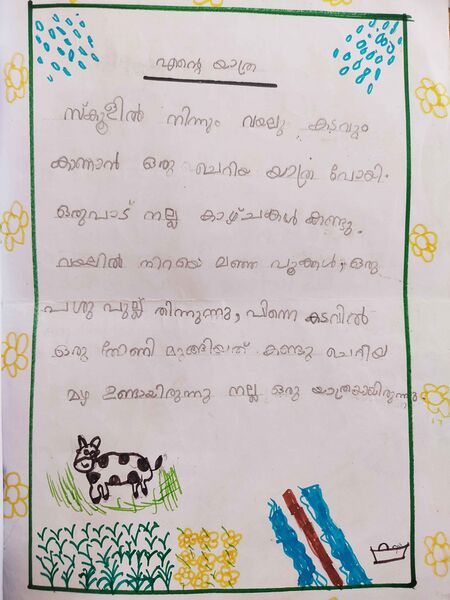 എന്റെ യാത്ര
സ്കൂളിൽ നിന്നും വയലു കടവും
കാന്നാൻ ഒരു ചെറിയ യാത്ര പോയി.
ഒരുപാട് നല്ല കാഴ്ചകൾ കണ്ടു.
വയലിൽ നിറയെ മഞ്ഞ പൂക്കൾ, ഒരു
പശു പുല്ല് തിന്നുന്നു, പിന്നെ കടവിൽ
ഒരു തോണി മുങ്ങിയത് കണ്ടു ചെറിയ
മഴ ഉണ്ടായിരുന്നു നല്ല ഒരു യാത്രയായിരുന്നു.